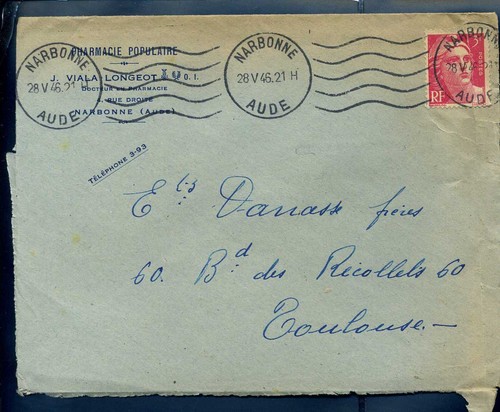 PHARMACIE POPULAIRE
J. VIALA LONGEOT O. I.
DOCTEUR EN PHARMACIE
RUE DROITE
NARBONNE (AUDE)
TÉLÉPHONE 3-93
NARBONNE
28 V 46.21 H
AUDE
NARBONNE
28 V 46.21 H
AUDE
NARBONNE
28 V 46.21
AUDE
RF
Ets Danasse frères
60. Bd des Récollets 60
Toulouse.—